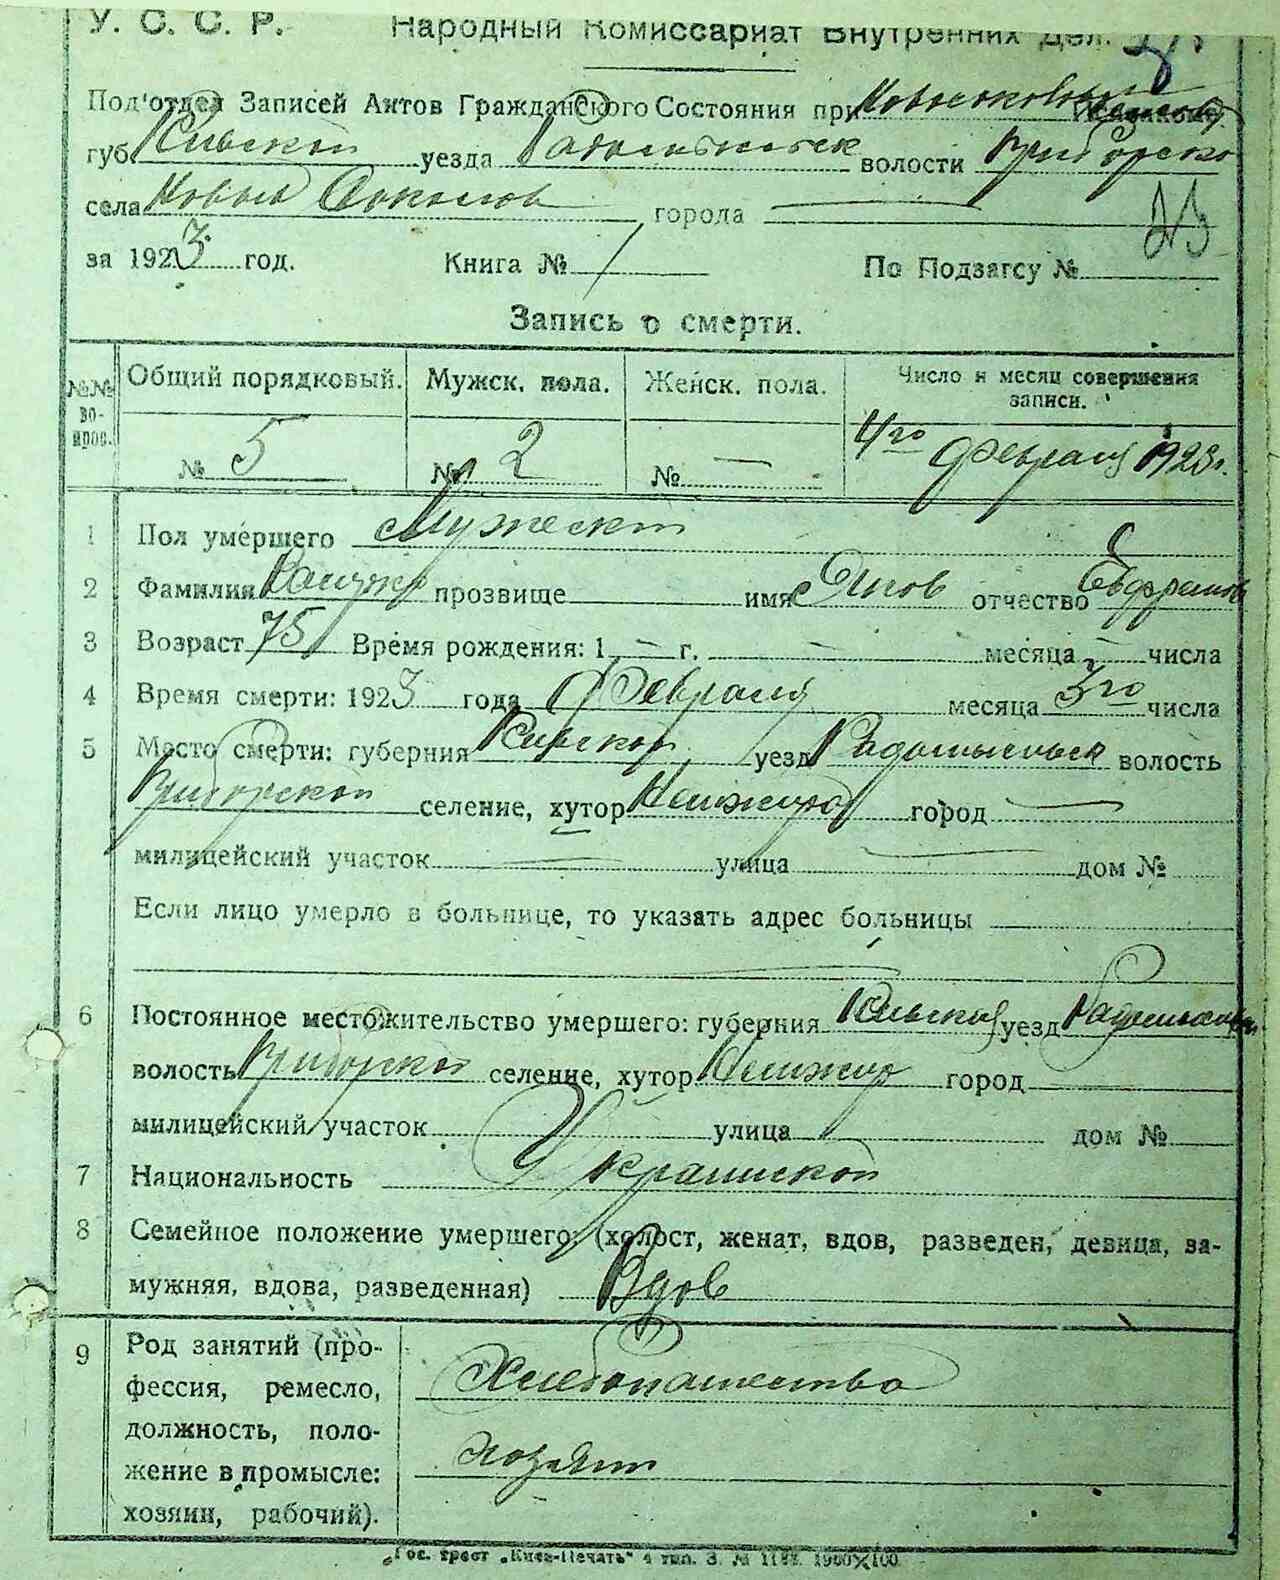 У. С. С. Р. Народный Комиссариат Внутренних Дел.
Под'отдел Записей Актов Гражданского Состояния при
губ. Киевской уезда волости Приборско
села Новые Соколов города —
за 1923 год. Книга № 1 По Подзагсу № 23
Запись о смерти.
№№ вопрос. Общий порядковый. Мужск. пола. Женск. пола. Число и месяц совершения записи.
№ 5 № 2 № — 4го февраля 1923 г.
1 Пол умершего Мужеск
2 Фамилия прозвище имя Яков отчество
3 Возраст 75 Время рождения: 1 — г. — месяца — числа
4 Время смерти: 1923 года февраля месяца 3го числа
5 Место смерти: губерния Киевской уезд Радомысльск волость
Приборской селение, хутор город —
милицейский участок — улица — дом №
Если лицо умерло в больнице, то указать адрес больницы
6 Постоянное местожительство умершего: губерния Киевской уезд
волость Приборской селение, хутор город
милицейский участок улица дом №
7 Национальность Украинской
8 Семейное положение умершего: (холост, женат, вдов, разведен, девица, за-
мужняя, вдова, разведенная) Вдов
9 Род занятий (про-
фессия, ремесло, Хлебопашество
должность, поло-
жение в промысле: хозяин
хозяин, рабочий).
„Гос. трест „Киев-Печать" 4 тип. З. №